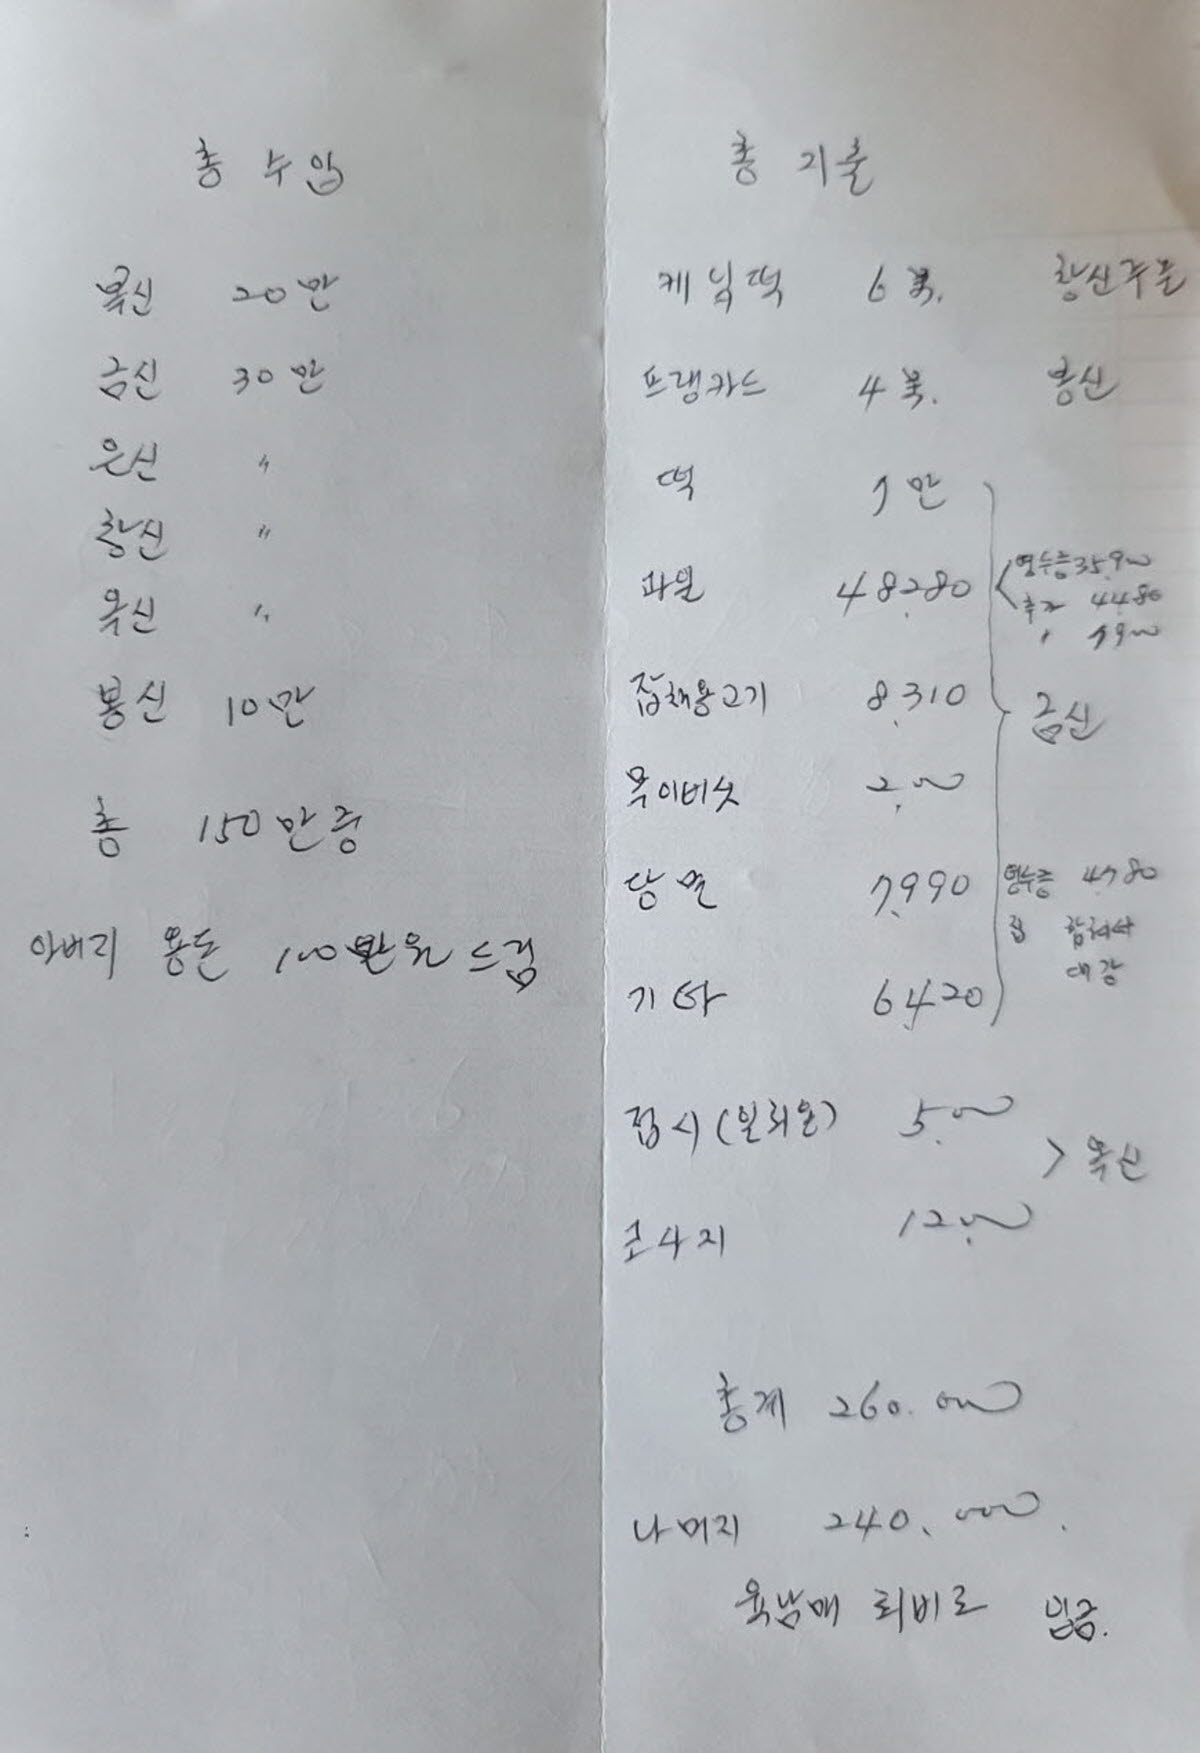 총 수입
복신 20만
금신 30만
은신 〃
창신 〃
옥신 〃
봉신 10만
총 150만중
아버리 용돈 100만원 드림
총 지출
케잌떡 6 창신주문
프랭카드 4 봉신
떡 7만
과일 48,280
영수증 35,900
추가 4480
〃 7900
잡채용고기 8,310
금신
목이버섯 2,000
당면 7,990
영수증 4,780
집 합쳐서
대강
기타 6,420
접시(일회용) 5,000
> 옥신
코사지 12,000
총계 260,000
나머지 240,000.
육남매 회비로 입금.